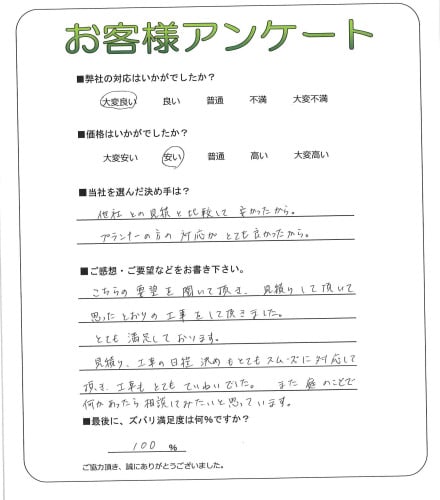 お客様アンケート
■弊社の対応はいかがでしたか?
大変良い 良い 普通 不満 大変不満
■価格はいかがでしたか?
大変安い 安い 普通 高い 大変高い
■当社を選んだ決め手は?
他社との見積と比較して安かったから。
プランナーの方の対応がとても良かったから。
■ご感想・ご要望などをお書き下さい。
こちらの要望を聞いて頂き、見積りして頂いて
思ったとおりの工事をして頂きました。
とても満足しております。
見積り、工事の日程決めもとてもスムーズに対応して
頂き、工事もとてもていねいでした。また庭のことで
何かあったら相談してみたいと思っています。
■最後に、ズバリ満足度は何%ですか?
100 %
ご協力頂き、誠にありがとうございました。